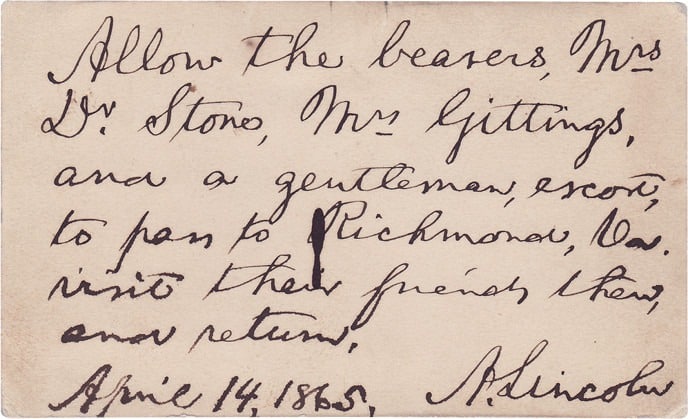 Allow the bearers, Mrs
Dr. Stone, Mrs Gittings,
and a gentleman, escort,
to pass to Richmond, Va.
visit their friends there,
and return.
April 14, 1865. A. Lincoln